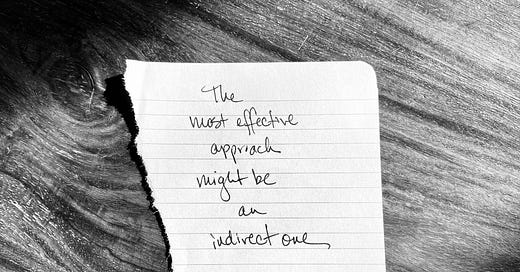 The
most effective
approach
might be
an
indirect one